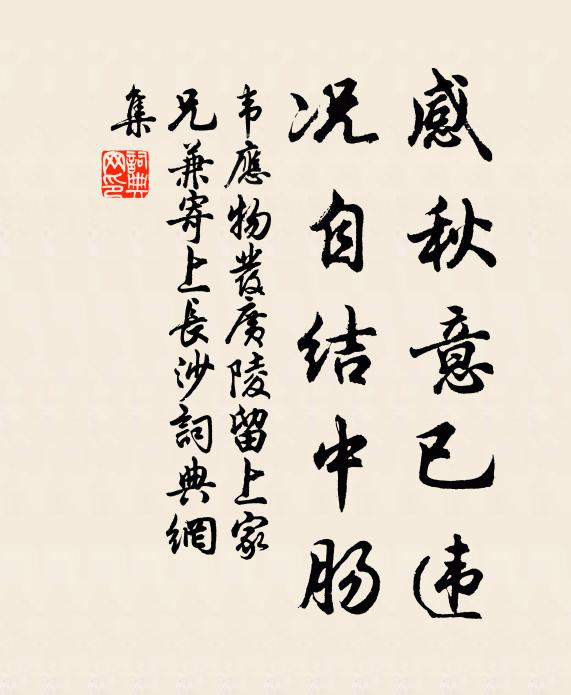 感秋意已违
况自结中肠
韦應物發廣陵留上家
兄兼寄上長沙詞典網
集
詞典
网印